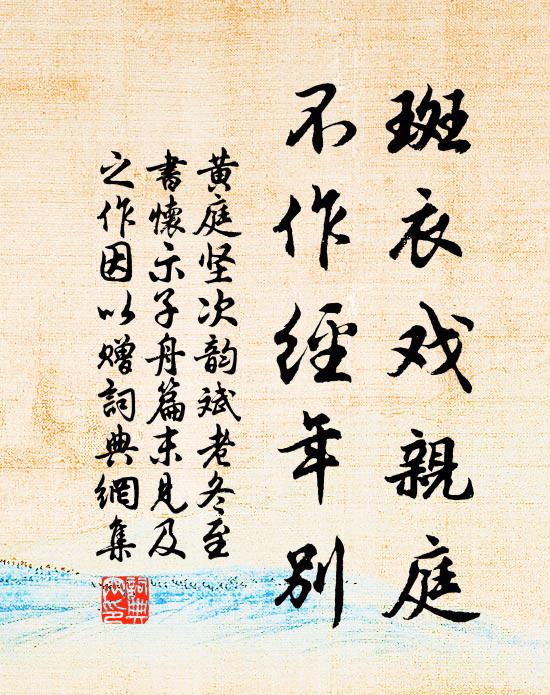 斑衣戏親庭
不作經年別
黄庭坚次韵斌老冬至
書懷示子舟篇末見及
之作因以赠詞典網集